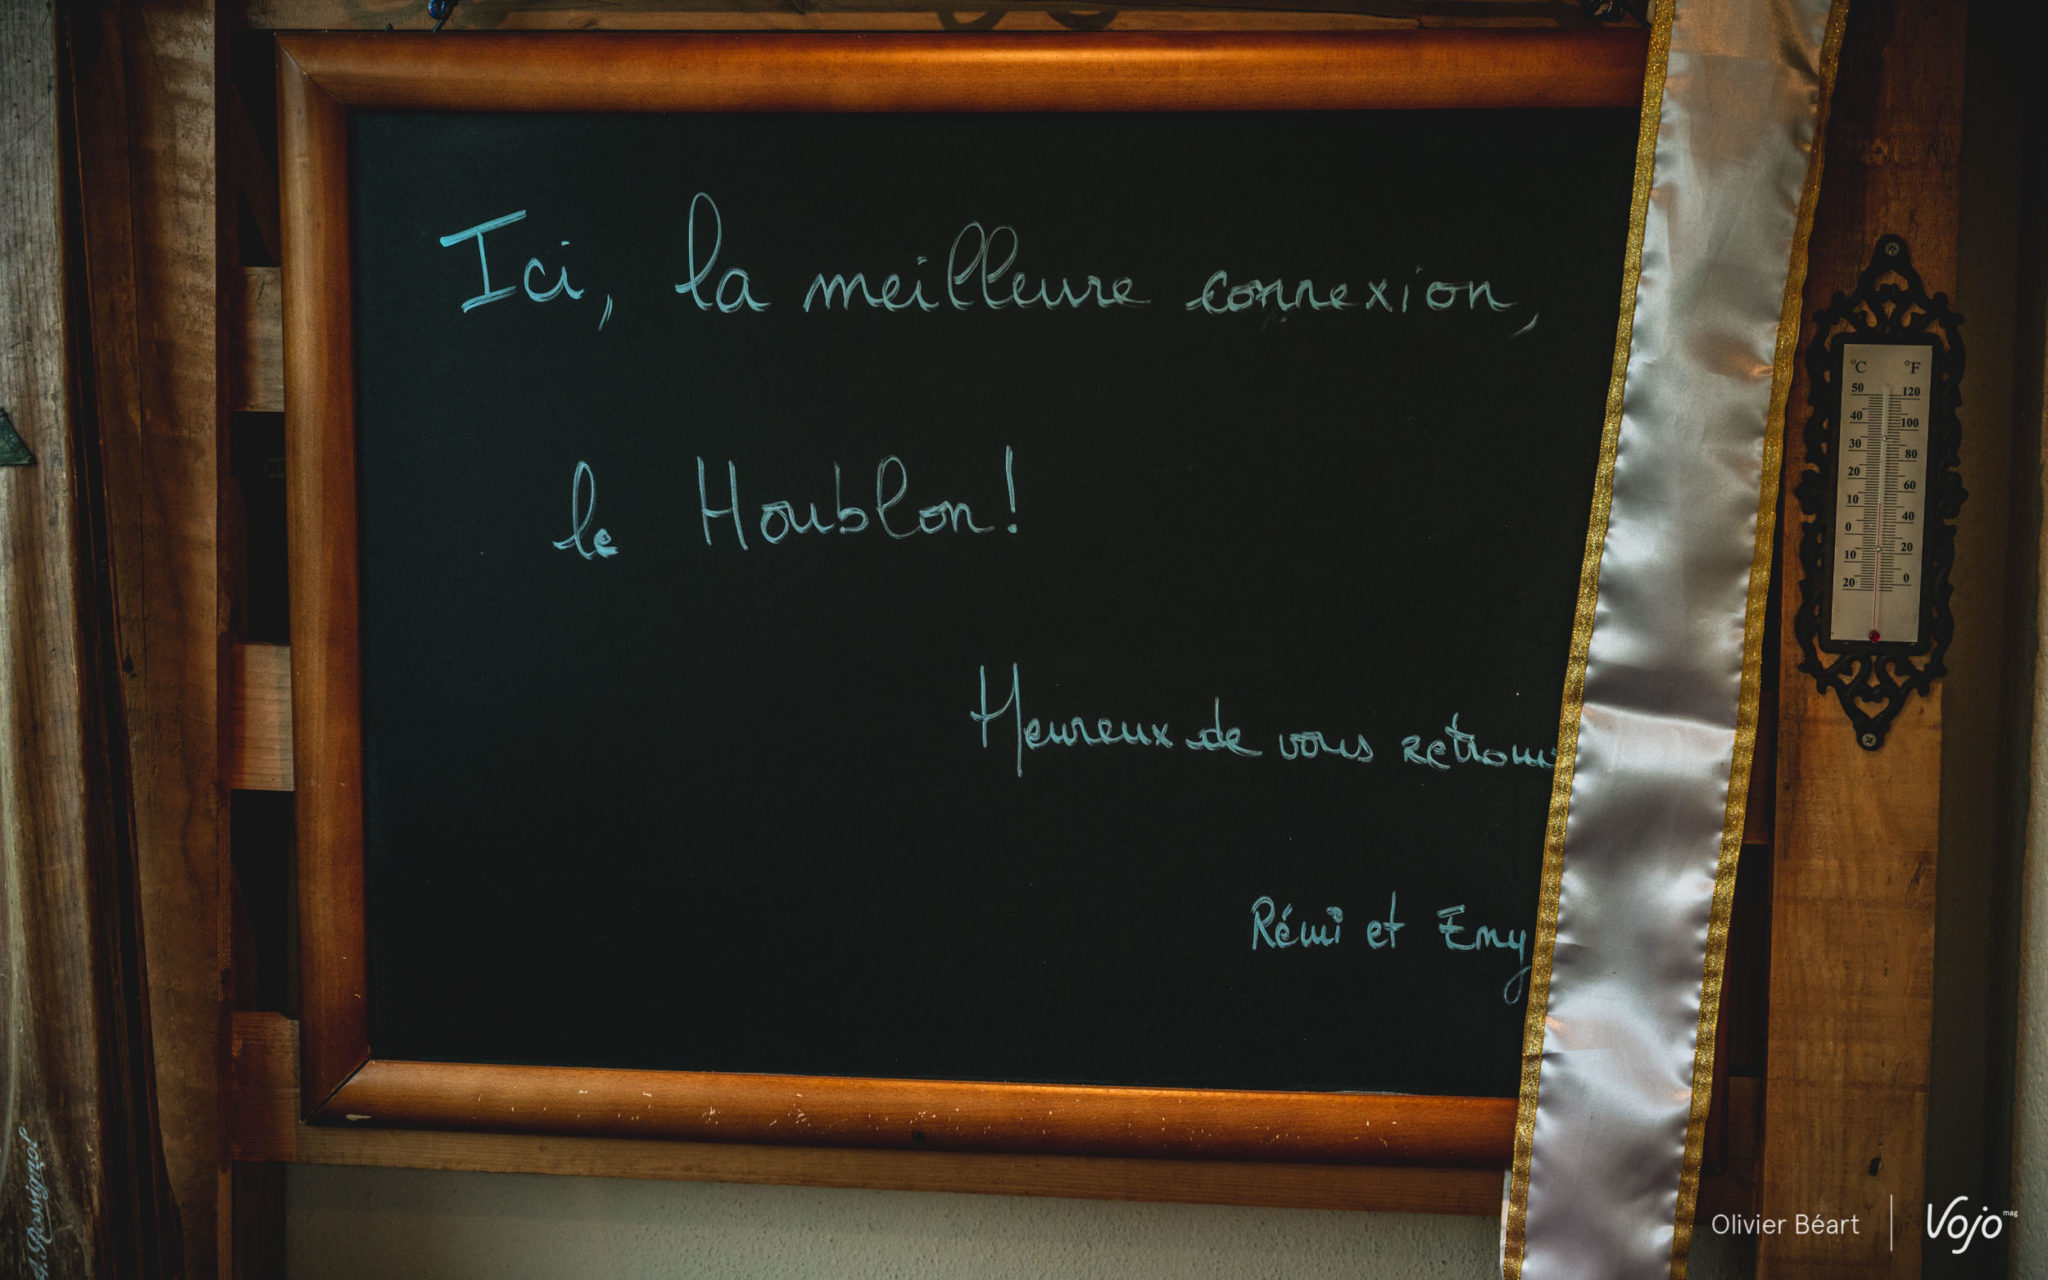 Ici, la meilleure connexion,
le Houblon!
Heureux de vous
Rémi et Emy
°C °F
50 120
40 100
30 80
20 60
10 40
0 20
10 0
20
A. Rossignol
Olivier Béart
Vojo mag